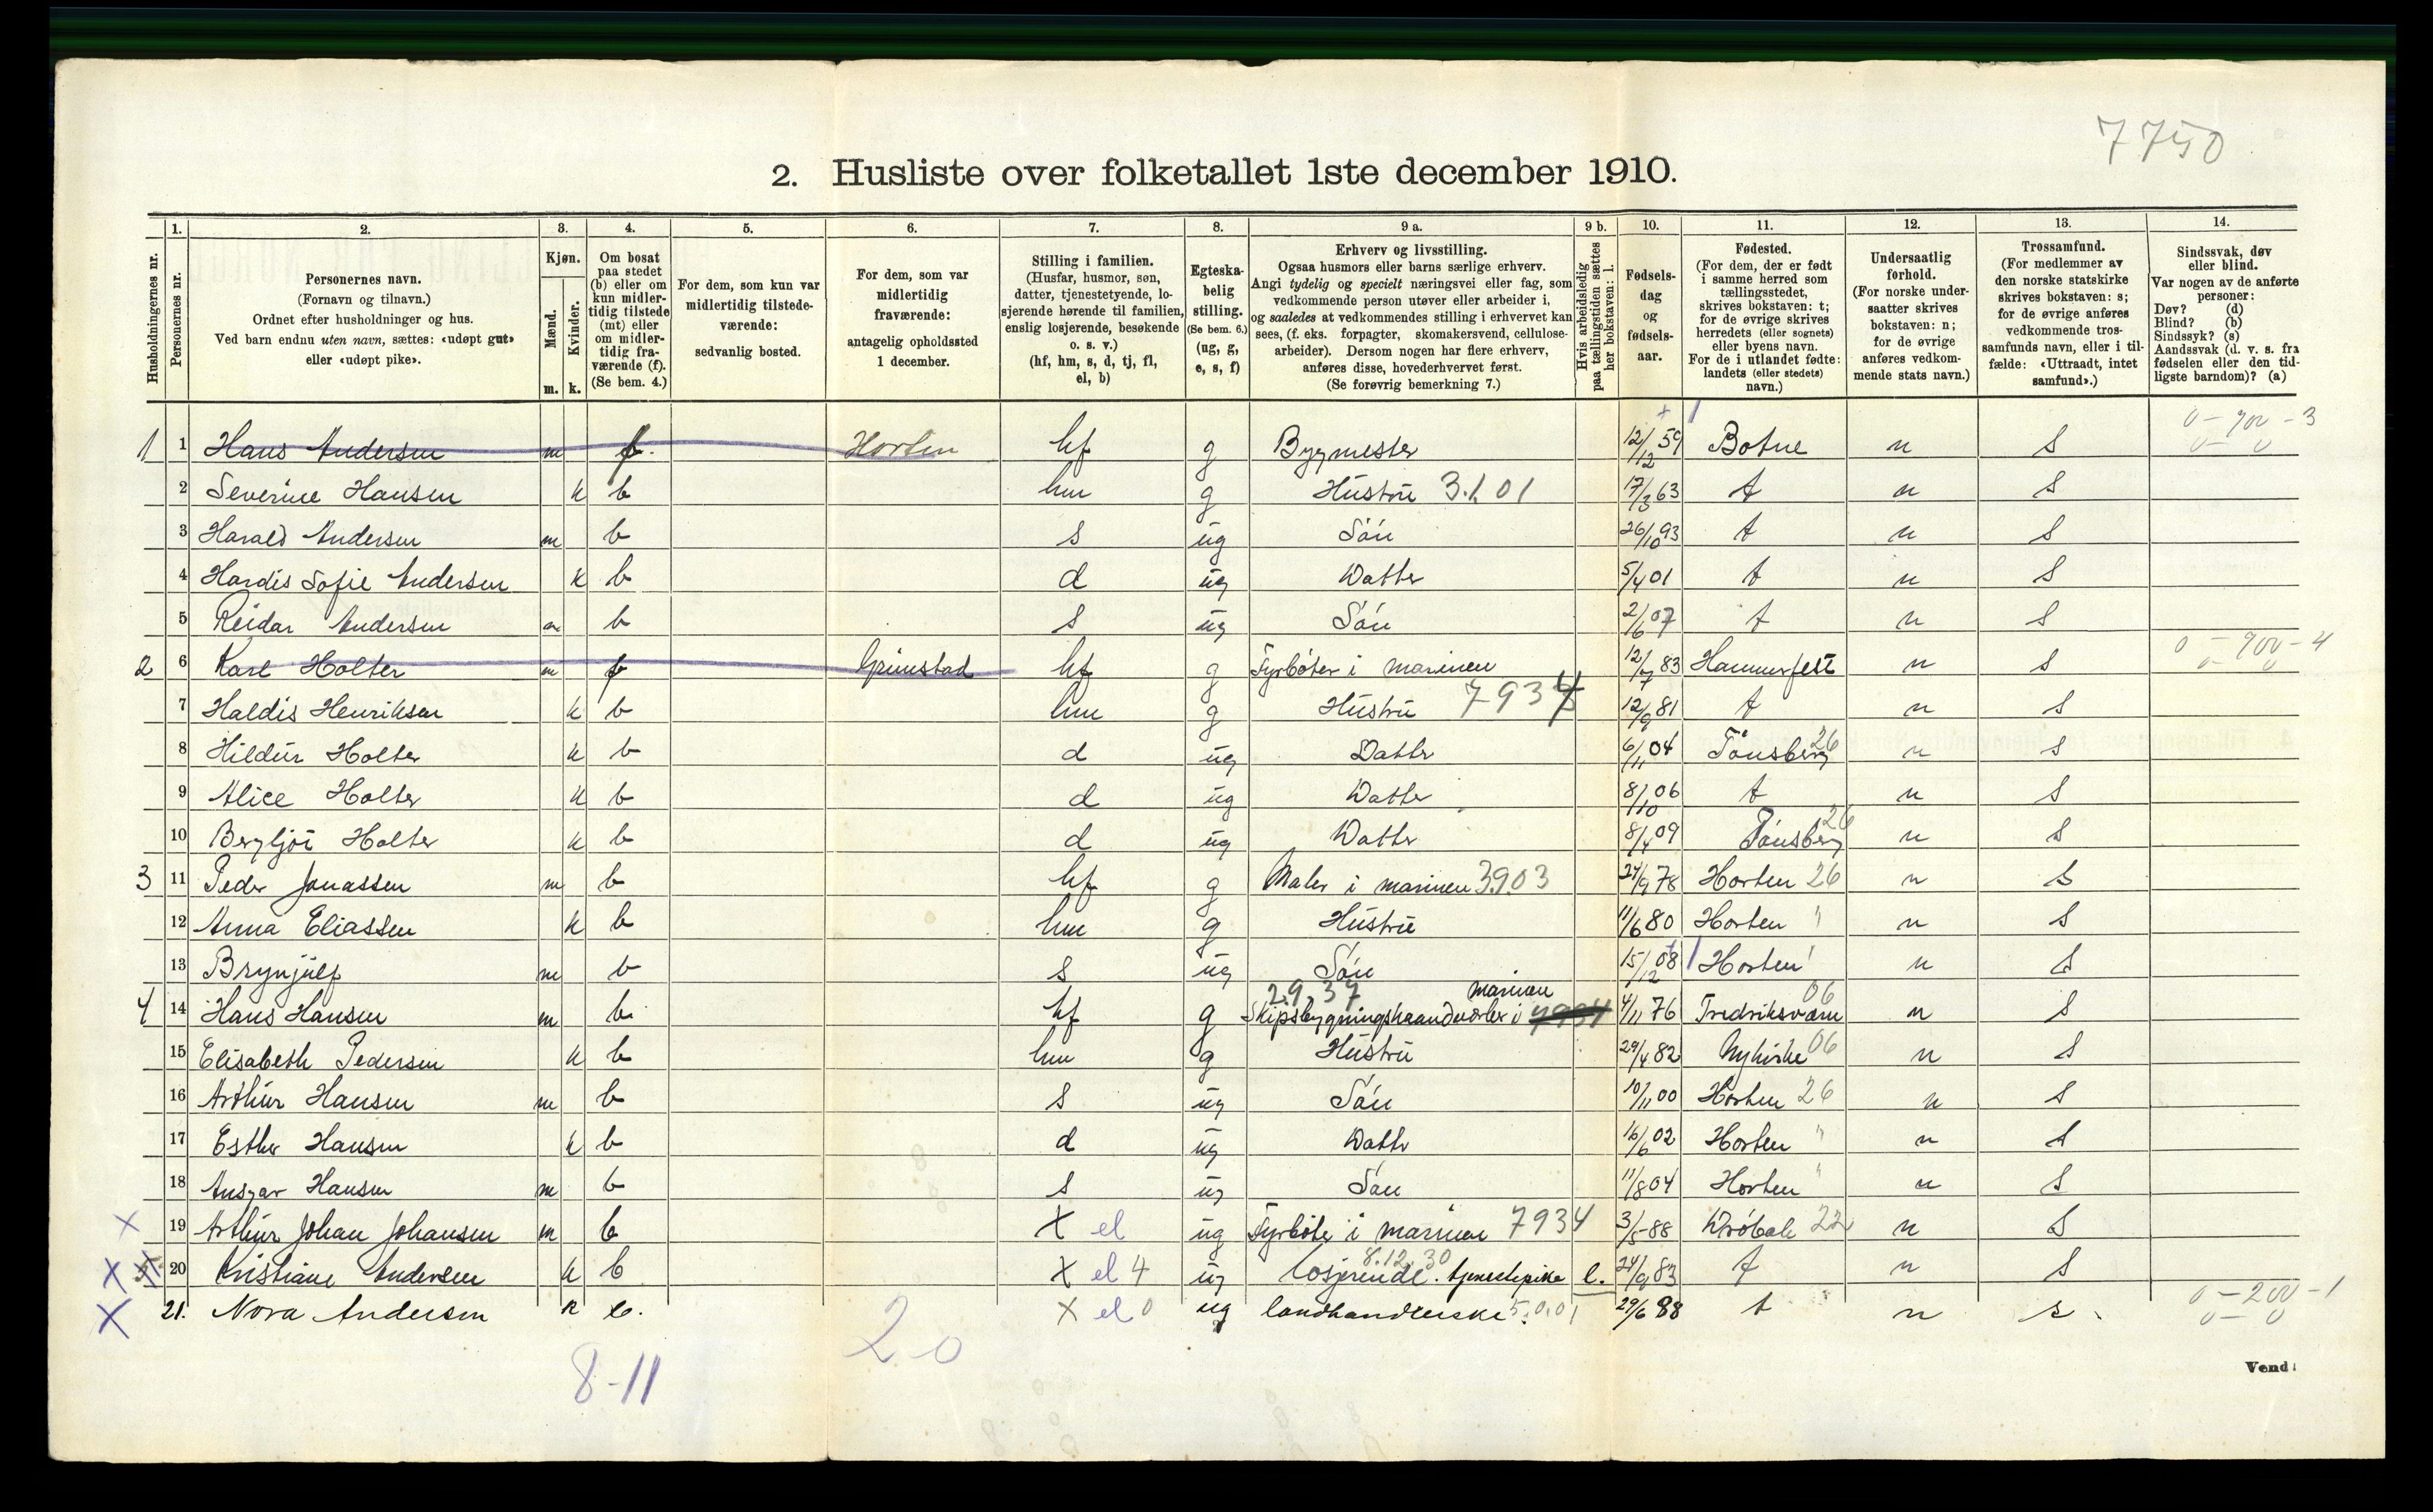 7750
2. Husliste over folketallet 1ste december 1910.
1. 2. 3. 4. 5. 6. 7. 8. 9 a. 9 b. 10. 11. 12. 13. 14.
Husholdningernes nr.
Personernes nr.
Personernes navn.
(Fornavn og tilnavn.)
Ordnet efter husholdninger og hus.
Ved barn endnu uten navn, sættes: «udøpt gut»
eller «udøpt pike».
Kjøn.
Mænd.
Kvinder.
m. k.
Om bosat
paa stedet
(b) eller om
kun midler-
tidig tilstede
(mt) eller
om midler-
tidig fra-
værende (f).
(Se bem. 4.)
For dem, som kun var
midlertidig tilstede-
værende:
sedvanlig bosted.
For dem, som var
midlertidig
fraværende:
antagelig opholdssted
1 december.
Stilling i familien.
(Husfar, husmor, søn,
datter, tjenestetyende, lo-
sjerende hørende til familien,
enslig losjerende, besøkende
o. s. v.)
(hf, hm, s, d, tj, fl,
el, b)
Egteska-
belig
stilling.
(Se bem. 6.)
(ug, g,
e, s, f)
Erhverv og livsstilling.
Ogsaa husmors eller barns særlige erhverv.
Angi tydelig og specielt næringsvei eller fag, som
vedkommende person utøver eller arbeider i,
og saaledes at vedkommendes stilling i erhvervet kan
sees, (f. eks. forpagter, skomakersvend, cellulose-
arbeider). Dersom nogen har flere erhverv,
anføres disse, hovederhvervet først.
(Se forøvrig bemerkning 7.)
Hvis arbeidsledig
paa tællingstiden sættes
her bokstaven: l.
Fødsels-
dag
og
fødsels-
aar.
Fødested.
(For dem, der er født
i samme herred som
tællingsstedet,
skrives bokstaven: t;
for de øvrige skrives
herredets (eller sognets)
eller byens navn.
For de i utlandet fødte:
landets (eller stedets)
navn.)
Undersaatlig
forhold.
(For norske under-
saatter skrives
bokstaven: n;
for de øvrige
anføres vedkom-
mende stats navn.)
Trossamfund.
(For medlemmer av
den norske statskirke
skrives bokstaven: s;
for de øvrige anføres
vedkommende tros-
samfunds navn, eller i til-
fælde: «Uttraadt, intet
samfund».)
Sindssvak, døv
eller blind.
Var nogen av de anførte
personer:
Døv? (d)
Blind? (b)
Sindssyk? (s)
Aandssvak (d. v. s. fra
fødselen eller den tid-
ligste barndom)? (a)
1 1 Hans Andersen m f. Horten hf g Bygmester 12/12 59 Botne n S 0-900-3
2 Severine Hansen k b hm g Hustru 3.1.01 17/3 63 t n S
3 Harald Andersen m b s ug Sön 26/10 93 t n S
4 Hardis Sofie Andersen k b d ug Datter 5/4 01 t n S
5 Reidar Andersen m b s ug Sön 2/6 07 t n S
2 6 Karl Holter m f Grimstad hf g Fyrböter i marinen 12/7 83 Hammerfest n S 0-900-4
7 Haldis Henriksen k b hm g Hustru 7934 12/9 81 t n S
8 Hildur Holter k b d ug Datter 6/11 04 Tönsberg 26 n S
9 Alice Holter k b d ug Datter 8/10 06 t n S
10 Bergljot Holter k b d ug Datter 8/4 09 Tönsberg 26 n S
3 11 Peder Jonassen m b hf g Maler i marinen 3903 24/9 78 Horten 26 n S
12 Anna Eliassen k b hm g Hustru 11/6 80 Horten " n S
13 Brynjulf m b s ug Sön 15/12 08 Horten n S
4 14 Hans Hansen m b hf g 29.37 Skipsbygningshaandverker i marinen 4/11 76 Fredriksværn 06 n S
15 Elisabeth Pedersen k b hm g Hustru 29/4 82 Nykirke 06 n S
16 Arthur Hansen m b s ug Sön 10/11 00 Horten 26 n S
17 Esther Hansen k b d ug Datter 16/6 02 Horten " n S
18 Ansgar Hansen m b s ug Sön 11/8 04 Horten " n S
X 19 Arthur Johan Johansen m b X el ug Fyrböter i marinen 7934 3/5 88 Dröbak 22 n S
X X 20 Kristiane Andersen k b X el 4 ug 8.12.30 losjerende. tjenestepike l. 24/9 83 t n S
X 21. Nora Andersen k b. X el 0 ug landhandlerske. 5.0.01 29/6 88 t n s. 0-200-1
8-11 20
Vend!